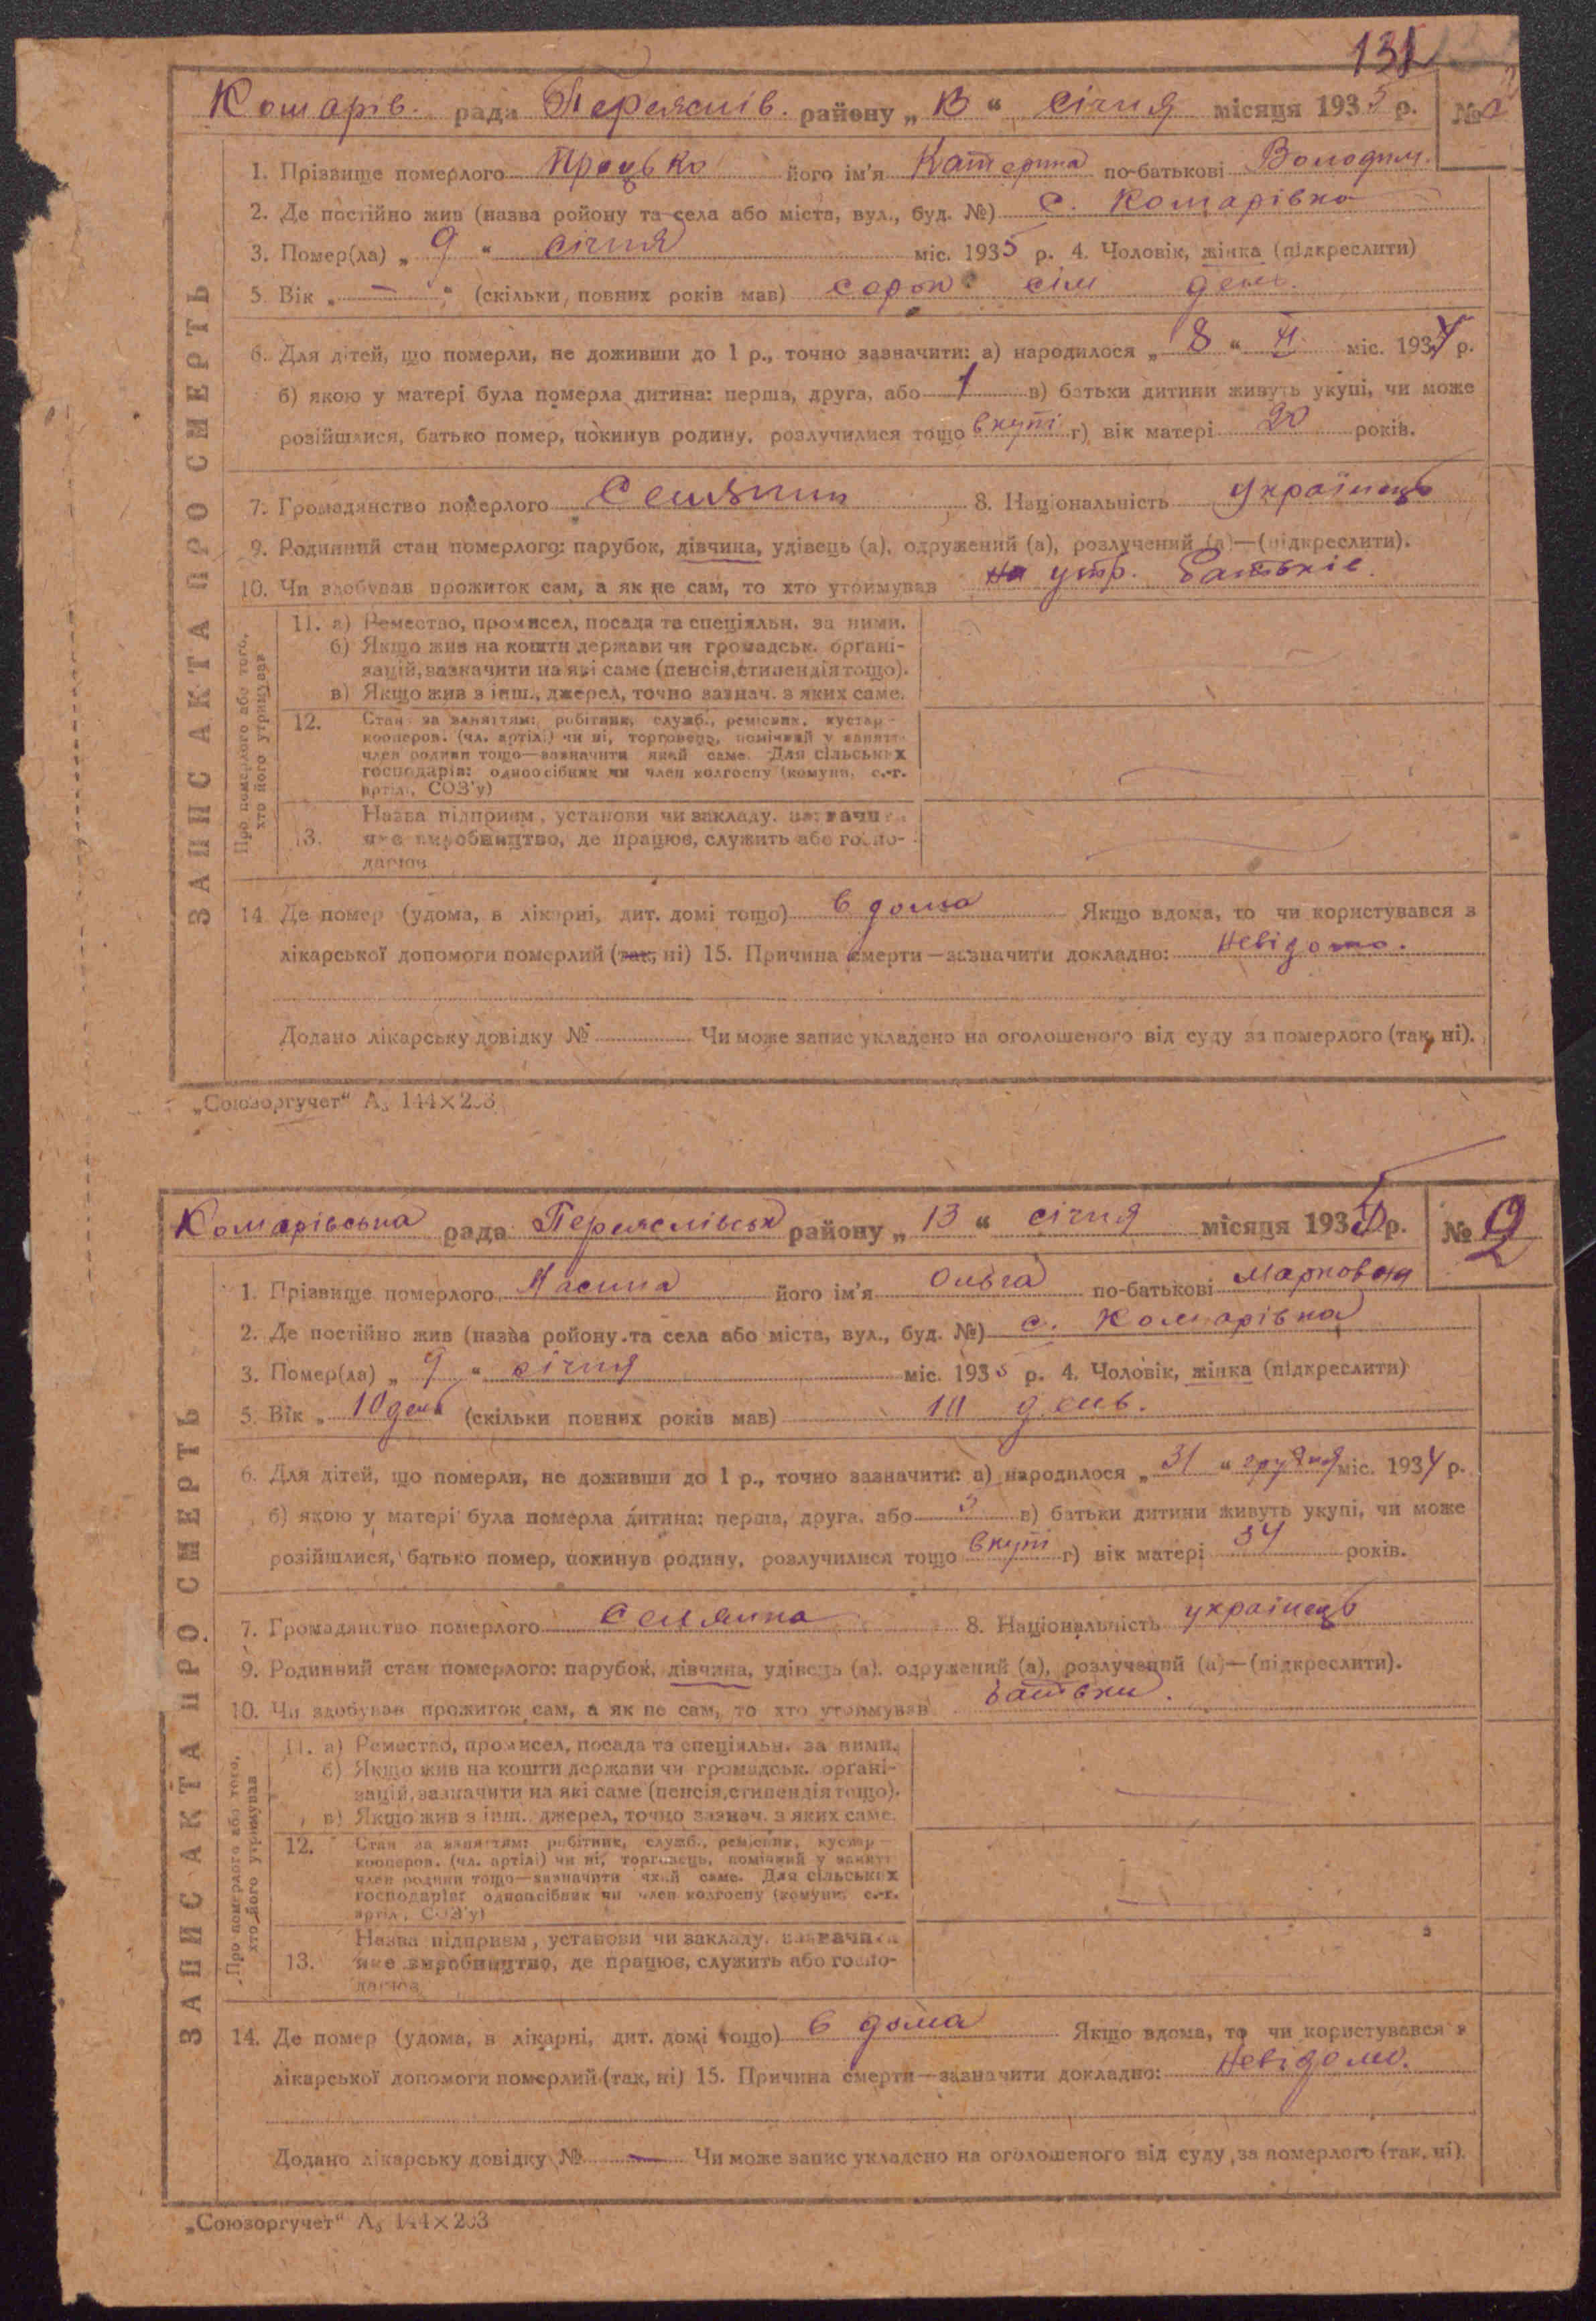 131
Комарів. рада Переяслів. району „ 13 “ січня місяця 1935 р. №
1. Прізвище померлого Процько його ім'я Катерина по-батькові Володим.
2. Де постійно жив (назва ройону та села або міста, вул., буд. №) с. Комарівка
3. Помер(ла) „ 9 “ січня міс. 1935 р. 4. Чоловік, жінка (підкреслити)
5. Вік „ — “ (скільки повних років мав) сорок сім день.
6. Для дітей, що померли, не доживши до 1 р., точно зазначити: а) народилося „ 18 “ міс. 1934 р.
б) якою у матері була померла дитина: перша, друга, або 1 в) батьки дитини живуть укупі, чи може
розійшлися, батько помер, покинув родину, розлучилися тощо вкупі г) вік матері 20 років.
7. Громадянство померлого Селянин 8. Національність українець
9. Родинний стан померлого: парубок, дівчина, удівець (а), одружений (а), розлучений (а)—(підкреслити).
10. Чи здобував прожиток сам, а як не сам, то хто утоимував на утр. батьків.
11. а) Ремество, промисел, посада та спеціяльн. за ними.
б) Якщо жив на кошти держави чи громадськ. органі-
зацій, зазначити на які саме (пенсія, стипендія тощо).
в) Якщо жив з інш., джерел, точно зазнач. з яких саме.
12. Стан за заняттям: робітник, служб., ремісник, кустар-
кооперов. (чл. артілі) чи ні, торговець, помічний у занятт.
член родини тощо—зазначити який саме. Для сільських
господарів: одноосібник чи член колгоспу (комуни, с.-г.
артілі, СОЗ'у)
13. Назва підприєм., установи чи закладу, зазначи
яке виробництво, де працює, служить або госпо-
дарює
Про померлого або того,
хто його утримував
ЗАПИС АКТА ПРО СМЕРТЬ
14. Де помер (удома, в лікарні, дит. домі тощо) в дома Якщо вдома, то чи користувався з
лікарської допомоги померлий (так, ні) 15. Причина смерти—зазначити докладно: Невідомо.
Додано лікарську довідку № Чи може запис укладено на оголошеного від суду за померлого (так, ні).
„Союзоргучет“ А₅ 144×203
Комарівська рада Переяслівськ району „ 13 “ січня місяця 1935 р. № 2
1. Прізвище померлого його ім'я Ольга по-батькові Марковна
2. Де постійно жив (назва ройону та села або міста, вул., буд. №) с. Комарівка
3. Помер(ла) „ 9 “ січня міс. 1935 р. 4. Чоловік, жінка (підкреслити)
5. Вік „ 10 день (скільки повних років мав) 10 день.
6. Для дітей, що померли, не доживши до 1 р., точно зазначити: а) народилося „ 31 “ грудня міс. 1934 р.
б) якою у матері була померла дитина: перша, друга, або 3 в) батьки дитини живуть укупі, чи може
розійшлися, батько помер, покинув родину, розлучилися тощо вкупі г) вік матері 34 років.
7. Громадянство померлого Селянка 8. Національність українець
9. Родинний стан померлого: парубок, дівчина, удівець (а), одружений (а), розлучений (а)—(підкреслити).
10. Чи здобував прожиток сам, а як не сам, то хто утоимував батьки.
11. а) Ремество, промисел, посада та спеціяльн. за ними.
б) Якщо жив на кошти держави чи громадськ. органі-
зацій, зазначити на які саме (пенсія, стипендія тощо).
в) Якщо жив з інш., джерел, точно зазнач. з яких саме.
12. Стан за заняттям: робітник, служб., ремісник, кустар-
кооперов. (чл. артілі) чи ні, торговець, помічний у занятт.
член родини тощо—зазначити який саме. Для сільських
господарів: одноосібник чи член колгоспу (комуни, с.-г.
артіл., СОЗ'у)
13. Назва підприєм., установи чи закладу, зазначи
яке виробництво, де працює, служить або госпо-
дарює
Про померлого або того,
хто його утримував
ЗАПИС АКТА ПРО СМЕРТЬ
14. Де помер (удома, в лікарні, дит. домі тощо) в дома Якщо вдома, то чи користувався з
лікарської допомоги померлий (так, ні) 15. Причина смерти—зазначити докладно: Невідомо.
Додано лікарську довідку № — Чи може запис укладено на оголошеного від суду за померлого (так, ні).
„Союзоргучет“ А₅ 144×203